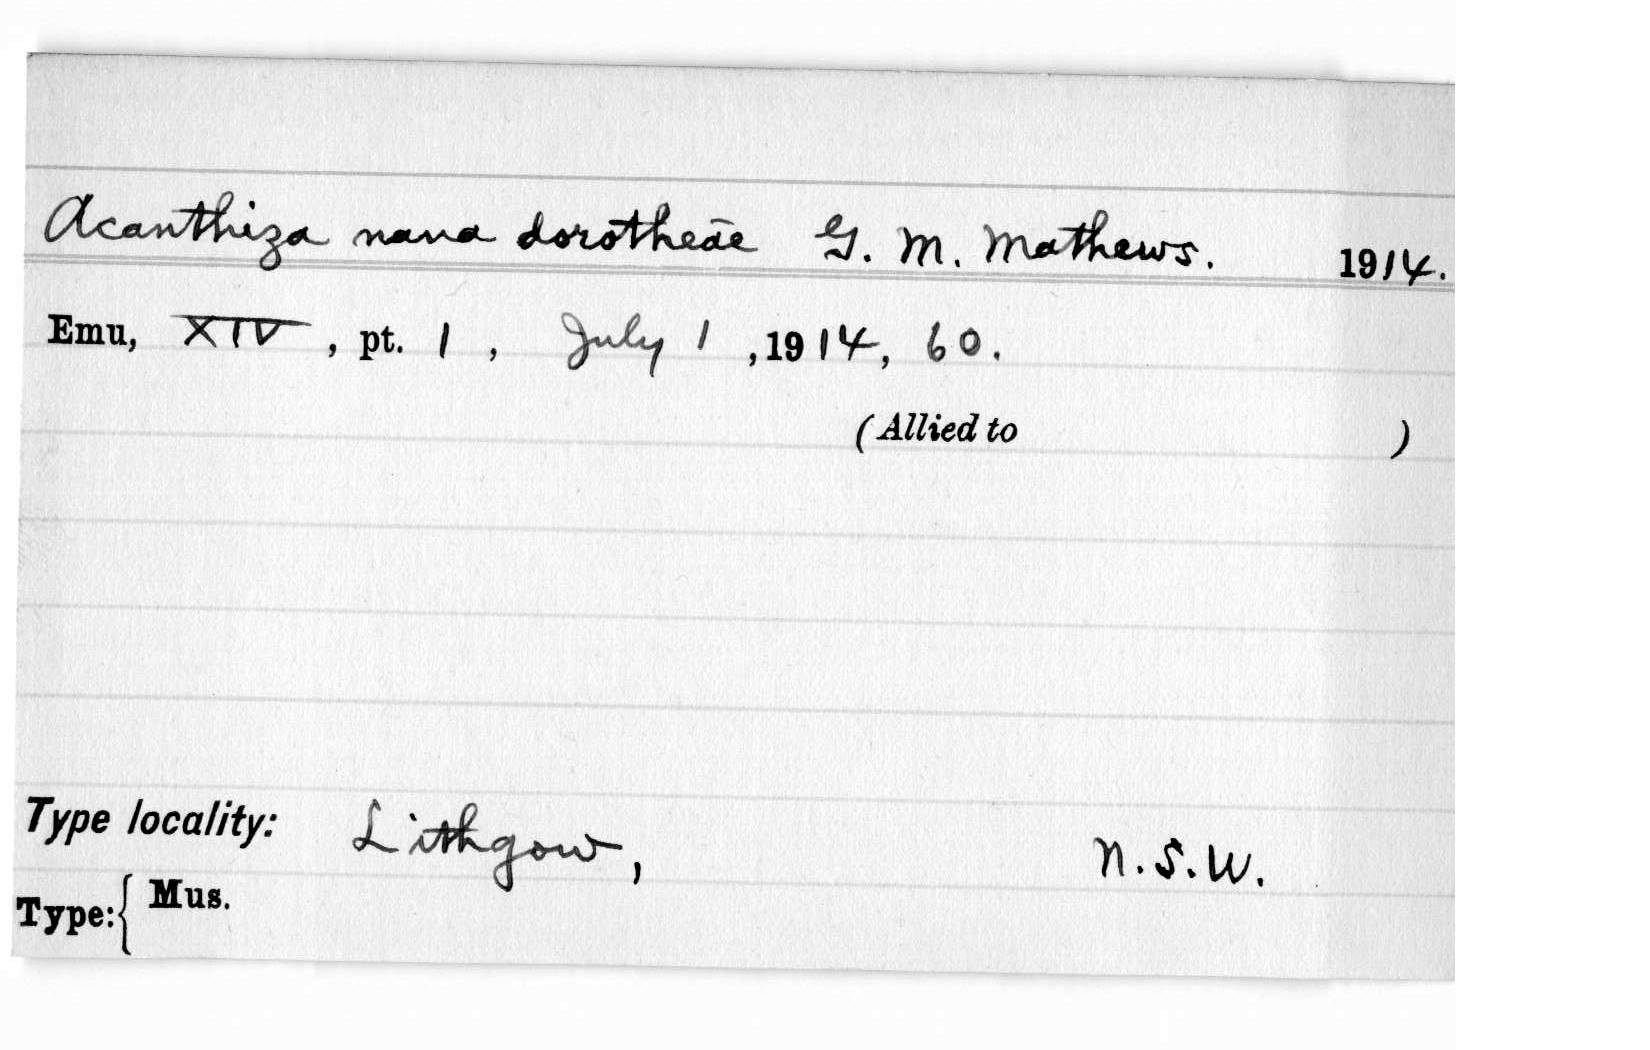 Acanthiza nana dorotheae G. M. Mathews. 1914.
Emu, XIV, pt. 1, July 1, 1914, 60.
(Allied to )
Type locality: Lithgow, N.S.W.
Type: { Mus.